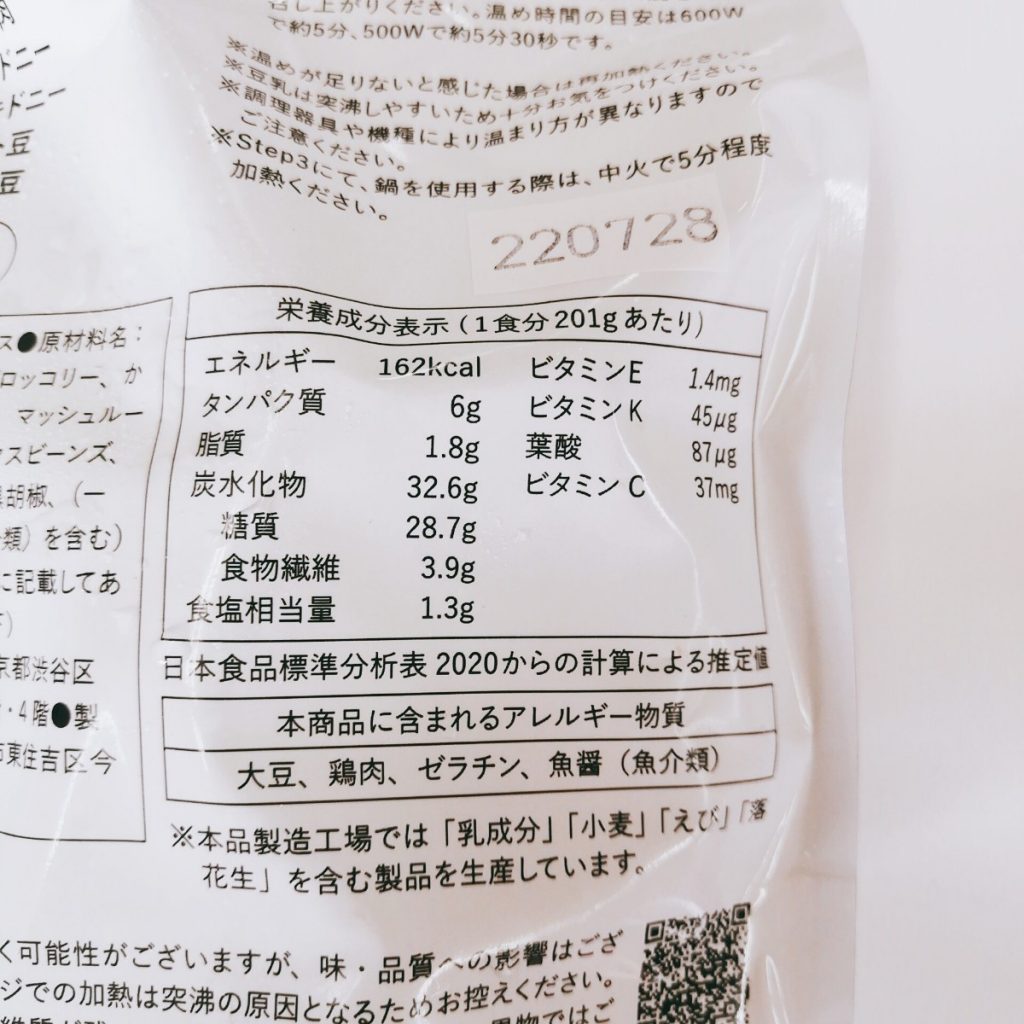 召し上がりください。温め時間の目安は600W
で約5分、500Wで約5分30秒です。
※温めが足りないと感じた場合は再加熱ください。
※豆乳は突沸しやすいため十分お気をつけください。
※調理器具や機種により温まり方が異なりますので
ご注意ください。
※Step3にて、鍋を使用する際は、中火で5分程度
加熱ください。
ドニー
ドニー
豆
豆
220728
ス●原材料名：
ロッコリー、か
マッシュルー
スビーンズ、
胡椒、（一
類）を含む）
に記載してあ
京都渋谷区
・4階●製
東住吉区今
栄養成分表示（1食分201gあたり）
エネルギー 162kcal ビタミンE 1.4mg
タンパク質 6g ビタミンK 45μg
脂質 1.8g 葉酸 87μg
炭水化物 32.6g ビタミンC 37mg
糖質 28.7g
食物繊維 3.9g
食塩相当量 1.3g
日本食品標準分析表2020からの計算による推定値
本商品に含まれるアレルギー物質
大豆、鶏肉、ゼラチン、魚醤（魚介類）
※本品製造工場では「乳成分」「小麦」「えび」「落
花生」を含む製品を生産しています。
く可能性がございますが、味・品質への影響はござ
ジでの加熱は突沸の原因となるためお控えください。